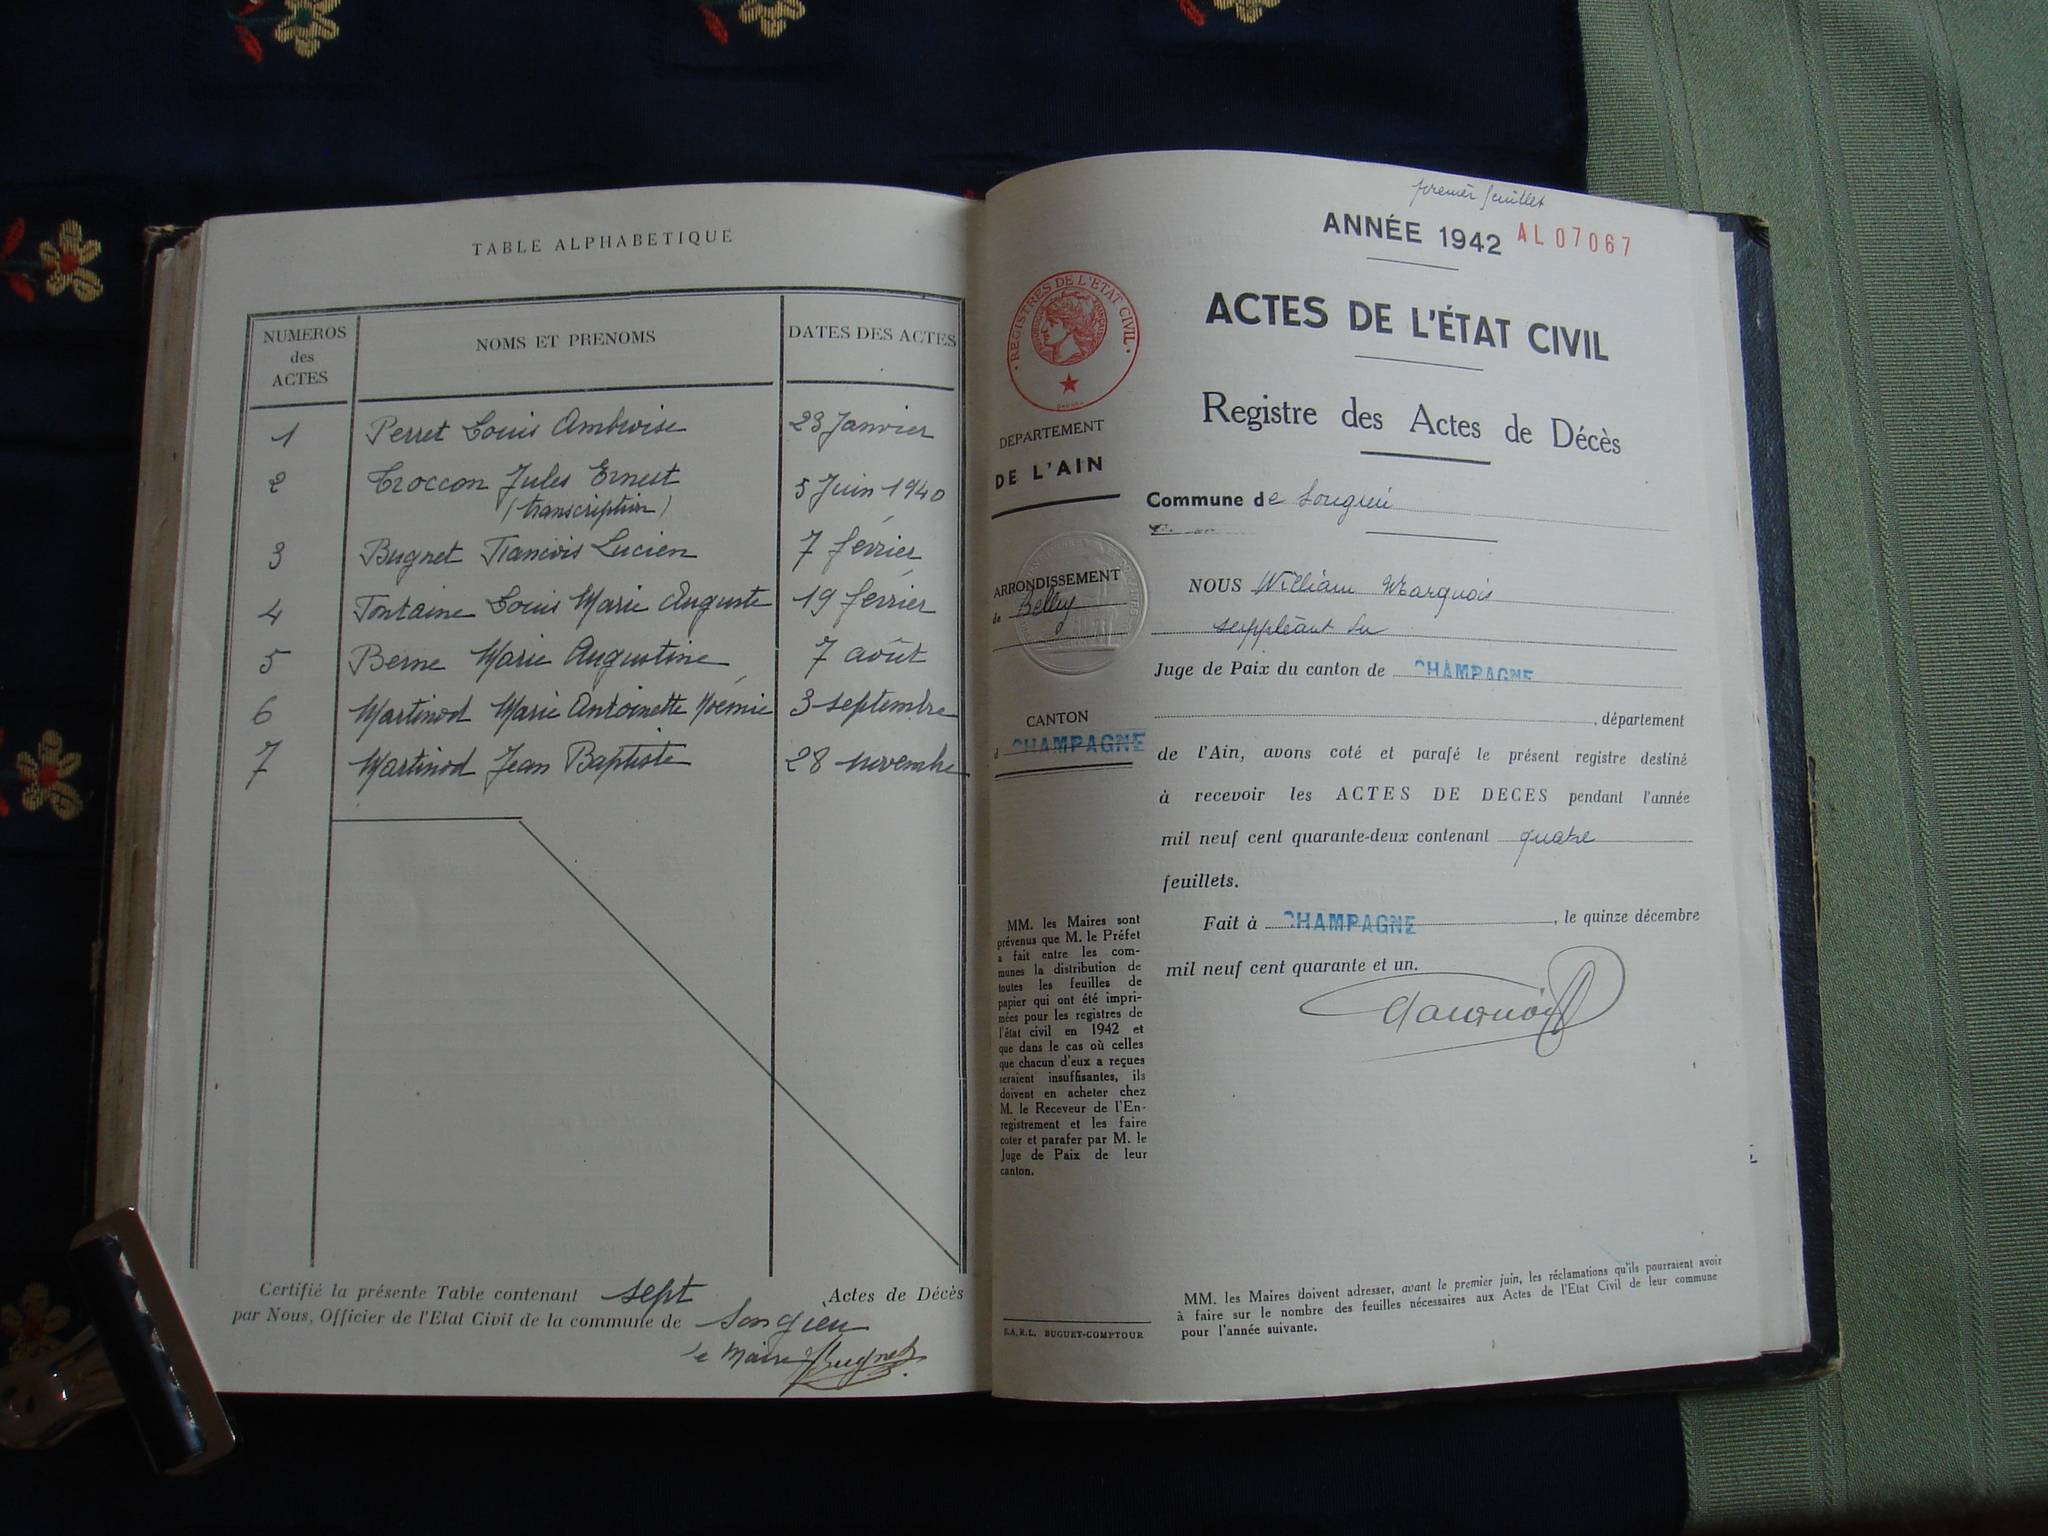 TABLE ALPHABETIQUE
NUMEROS
des
ACTES
NOMS ET PRENOMS
DATES DES ACTES
1 Perret Louis Ambroise 23 Janvier
2 Troccon Jules Ernest 5 Juin 1940
(transcription)
3 Bugnet Francois Lucien 7 février
4 Fontaine Louis Marie Auguste 19 février
5 Berne Marie Augustine 7 août
6 Martinod Marie Antoinette Noémie 3 septembre
7 Martinod Jean Baptiste 28 novembre
Certifié la présente Table contenant sept Actes de Décès
par Nous, Officier de l'Etat Civil de la commune de Songieu
le Maire Bugnet
premier feuillet
ANNÉE 1942 AL 07067
REGISTRES DE L'ETAT CIVIL
ACTES DE L'ÉTAT CIVIL
Registre des Actes de Décès
DEPARTEMENT
DE L'AIN
Commune de Songieu
ARRONDISSEMENT
de Belley
CANTON
d CHAMPAGNE
NOUS William Marquois
suppléant du
Juge de Paix du canton de CHAMPAGNE
, département
de l'Ain, avons coté et parafé le présent registre destiné
à recevoir les ACTES DE DECES pendant l'année
mil neuf cent quarante-deux contenant quatre
feuillets.
Fait à CHAMPAGNE, le quinze décembre
mil neuf cent quarante et un.
MM. les Maires sont
prévenus que M. le Préfet
a fait entre les com-
munes la distribution de
toutes les feuilles de
papier qui ont été impri-
mées pour les registres de
l'état civil en 1942 et
que dans le cas où celles
que chacun d'eux a reçues
seraient insuffisantes, ils
doivent en acheter chez
M. le Receveur de l'En-
registrement et les faire
coter et parafer par M. le
Juge de Paix de leur
canton.
S.A.R.L. BUGUET-COMPTOUR
MM. les Maires doivent adresser, avant le premier juin, les réclamations qu'ils pourraient avoir
à faire sur le nombre des feuilles nécessaires aux Actes de l'Etat Civil de leur commune
pour l'année suivante.